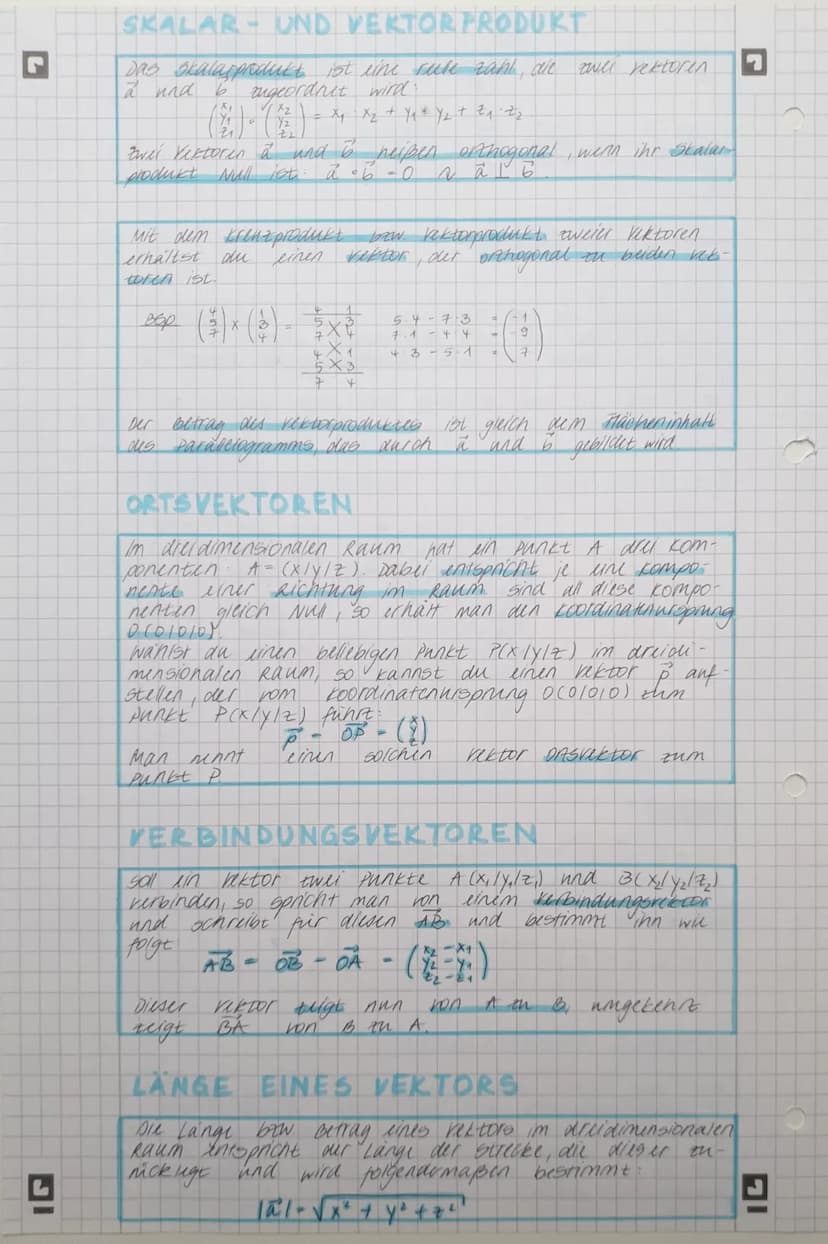 SKALAR- UND VEKTORPRODUKT
Das Skalarprodukt ist eine reele Zahl, die zwei Vektoren
a⃗ und b⃗ zugeordnet wird:
(x₁ y₁ z₁) ∘ (x₂ y₂ z₂) = x₁ · x₂ + y₁ * y₂ + z₁ · z₂
Zwei Vektoren a⃗ und b⃗ heißen orthogonal, wenn ihr Skalar-
produkt Null ist: a⃗ ∘ b⃗ = 0 ~ a⃗ ⊥ b⃗.
Mit dem Kreuzprodukt bzw Vektorprodukt zweier Vektoren
erhältst du einen Vektor, der orthogonal zu beiden Vek-
toren ist.
Bsp (4 5 7) × (1 3 4) =
4 1
5 3 5·4 - 7·3 = -1
7 4 7·1 - 4·4 = -9
4 1 4·3 - 5·1 = 7
5 3
7 4
Der Betrag des Vektorproduktes ist gleich dem Flächeninhalt
des Parallelogramms, das durch a⃗ und b⃗ gebildet wird
ORTSVEKTOREN
Im dreidimensionalen Raum hat ein Punkt A drei Kom-
ponenten: A=(x/y/z). Dabei entspricht je eine Kompo-
nente einer Richtung im Raum. Sind all diese Kompo-
nenten gleich Null, so erhält man den Koordinatenursprung
O(0/0/0).
Wählst du einen beliebigen Punkt P(x/y/z) im dreidi-
mensionalen Raum, so kannst du einen Vektor p⃗ auf-
stellen, der vom Koordinatenursprung O(0/0/0) zum
Punkt P(x/y/z) führt:
p⃗ = OP⃗ = (x y z)
Man nennt einen solchen Vektor Ortsvektor zum
Punkt P
VERBINDUNGSVEKTOREN
Soll ein Vektor zwei Punkte A(x₁/y₁/z₁) und B(x₂/y₂/z₂)
verbinden, so spricht man von einem Verbindungsvektor
und schreibt für diesen AB⃗ und bestimmt ihn wie
folgt
AB⃗ = OB⃗ - OA⃗ = (x₂-x₁ y₂-y₁ z₂-z₁)
Dieser Vektor zeigt nun von A zu B, umgekehrt
zeigt BA⃗ von B zu A.
LÄNGE EINES VEKTORS
Die Länge bzw Betrag eines Vektors im dreidimensionalen
Raum entspricht der Länge der Strecke, die dieser zu-
rücklegt und wird folgendermaßen bestimmt:
|a⃗| = √x² + y² + z²